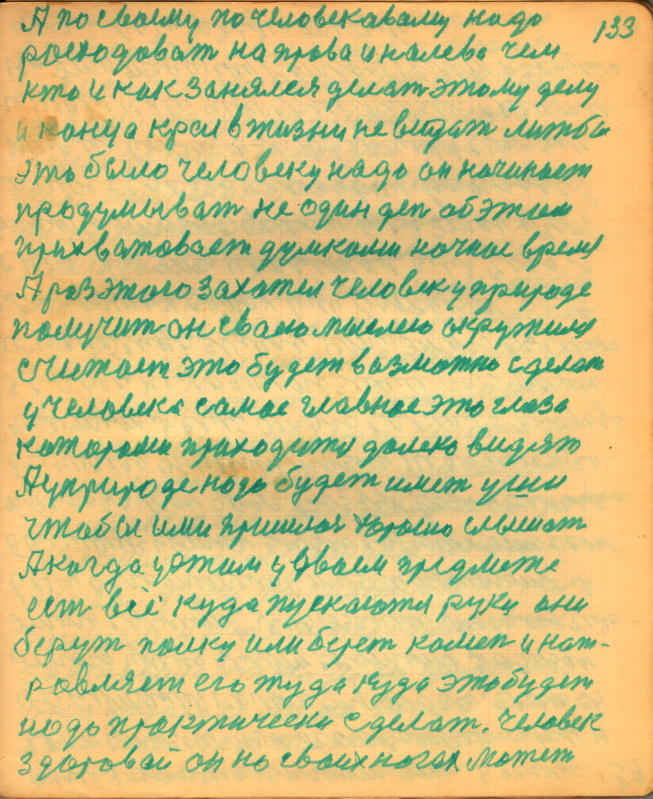 133
А по своему по человекавому надо
росходоват на права и налево чем
кто и как занялся делат этому делу
и конца края в жизни не видат лижбы
это было человеку надо он начинает
продумыват не один ден об этом
прихватовает думками ночное время
А раз этого захотел человек у природе
получит он сваею мыслею окружился
считает это будет возможно сделат
у человека самое главное это глаза
каторами приходится далеко видят
А у природе надо будет имет уши
чтобы ими пришлос хорошо слышат
А когда у этом у своем предмете
ест всё куда пускаются руки они
берут полку или берет камен и нат-
ровляет его туда куда это будет
надо практически сделат. Человек
здоровай он на своих ногах может